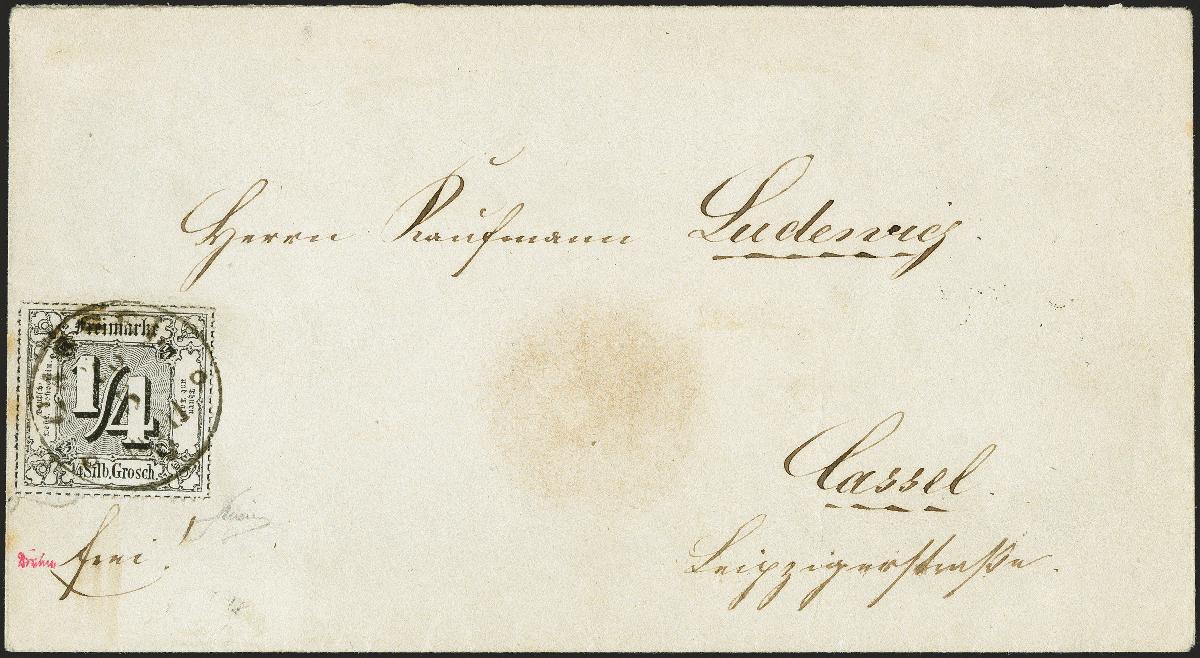 Herrn Kaufmann Ludewig.
Freimarke
1/4
1/4 Silb. Grosch.
Cassel.
Leipzigerstraße.
frei!